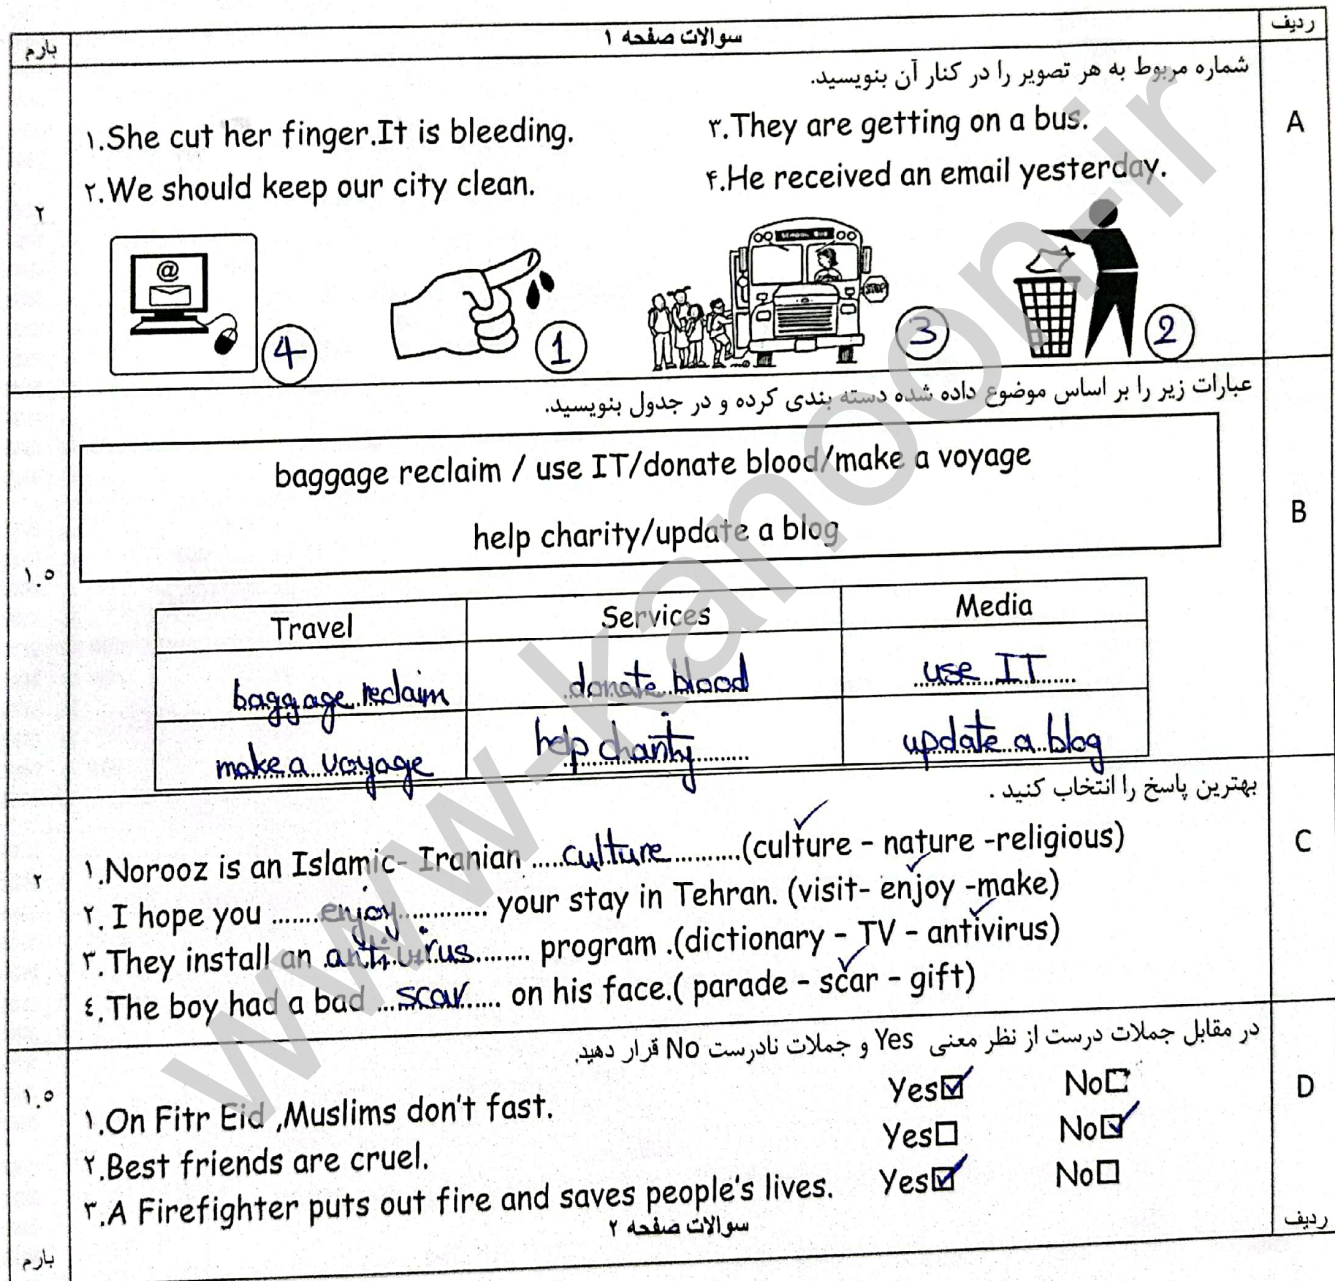 بارم
سوالات صفحه ۱
ردیف
شماره مربوط به هر تصویر را در کنار آن بنویسید.
A
۱.She cut her finger.It is bleeding.
۳.They are getting on a bus.
۲.We should keep our city clean.
۴.He received an email yesterday.
۲
@
SCHOOL BUS
STOP
4
1
3
2
عبارات زیر را بر اساس موضوع داده شده دسته بندی کرده و در جدول بنویسید.
baggage reclaim / use IT/donate blood/make a voyage
help charity/update a blog
B
۱.۵
Travel Services Media
baggage reclaim donate blood use IT
make a voyage help charity update a blog
بهترین پاسخ را انتخاب کنید .
C
۲
۱.Norooz is an Islamic- Iranian .....culture..........(culture - nature -religious)
۲. I hope you .......enjoy............ your stay in Tehran. (visit- enjoy -make)
۳.They install an .antivirus........ program .(dictionary - TV - antivirus)
٤.The boy had a bad ...scar..... on his face.( parade - scar - gift)
در مقابل جملات درست از نظر معنی Yes و جملات نادرست No قرار دهید.
D
۱.۵
۱.On Fitr Eid ,Muslims don't fast. Yes☑ No☐
۲.Best friends are cruel. Yes☐ No☑
۳.A Firefighter puts out fire and saves people's lives. Yes☑ No☐
سوالات صفحه ۲
ردیف
بارم
www.kanoon.ir